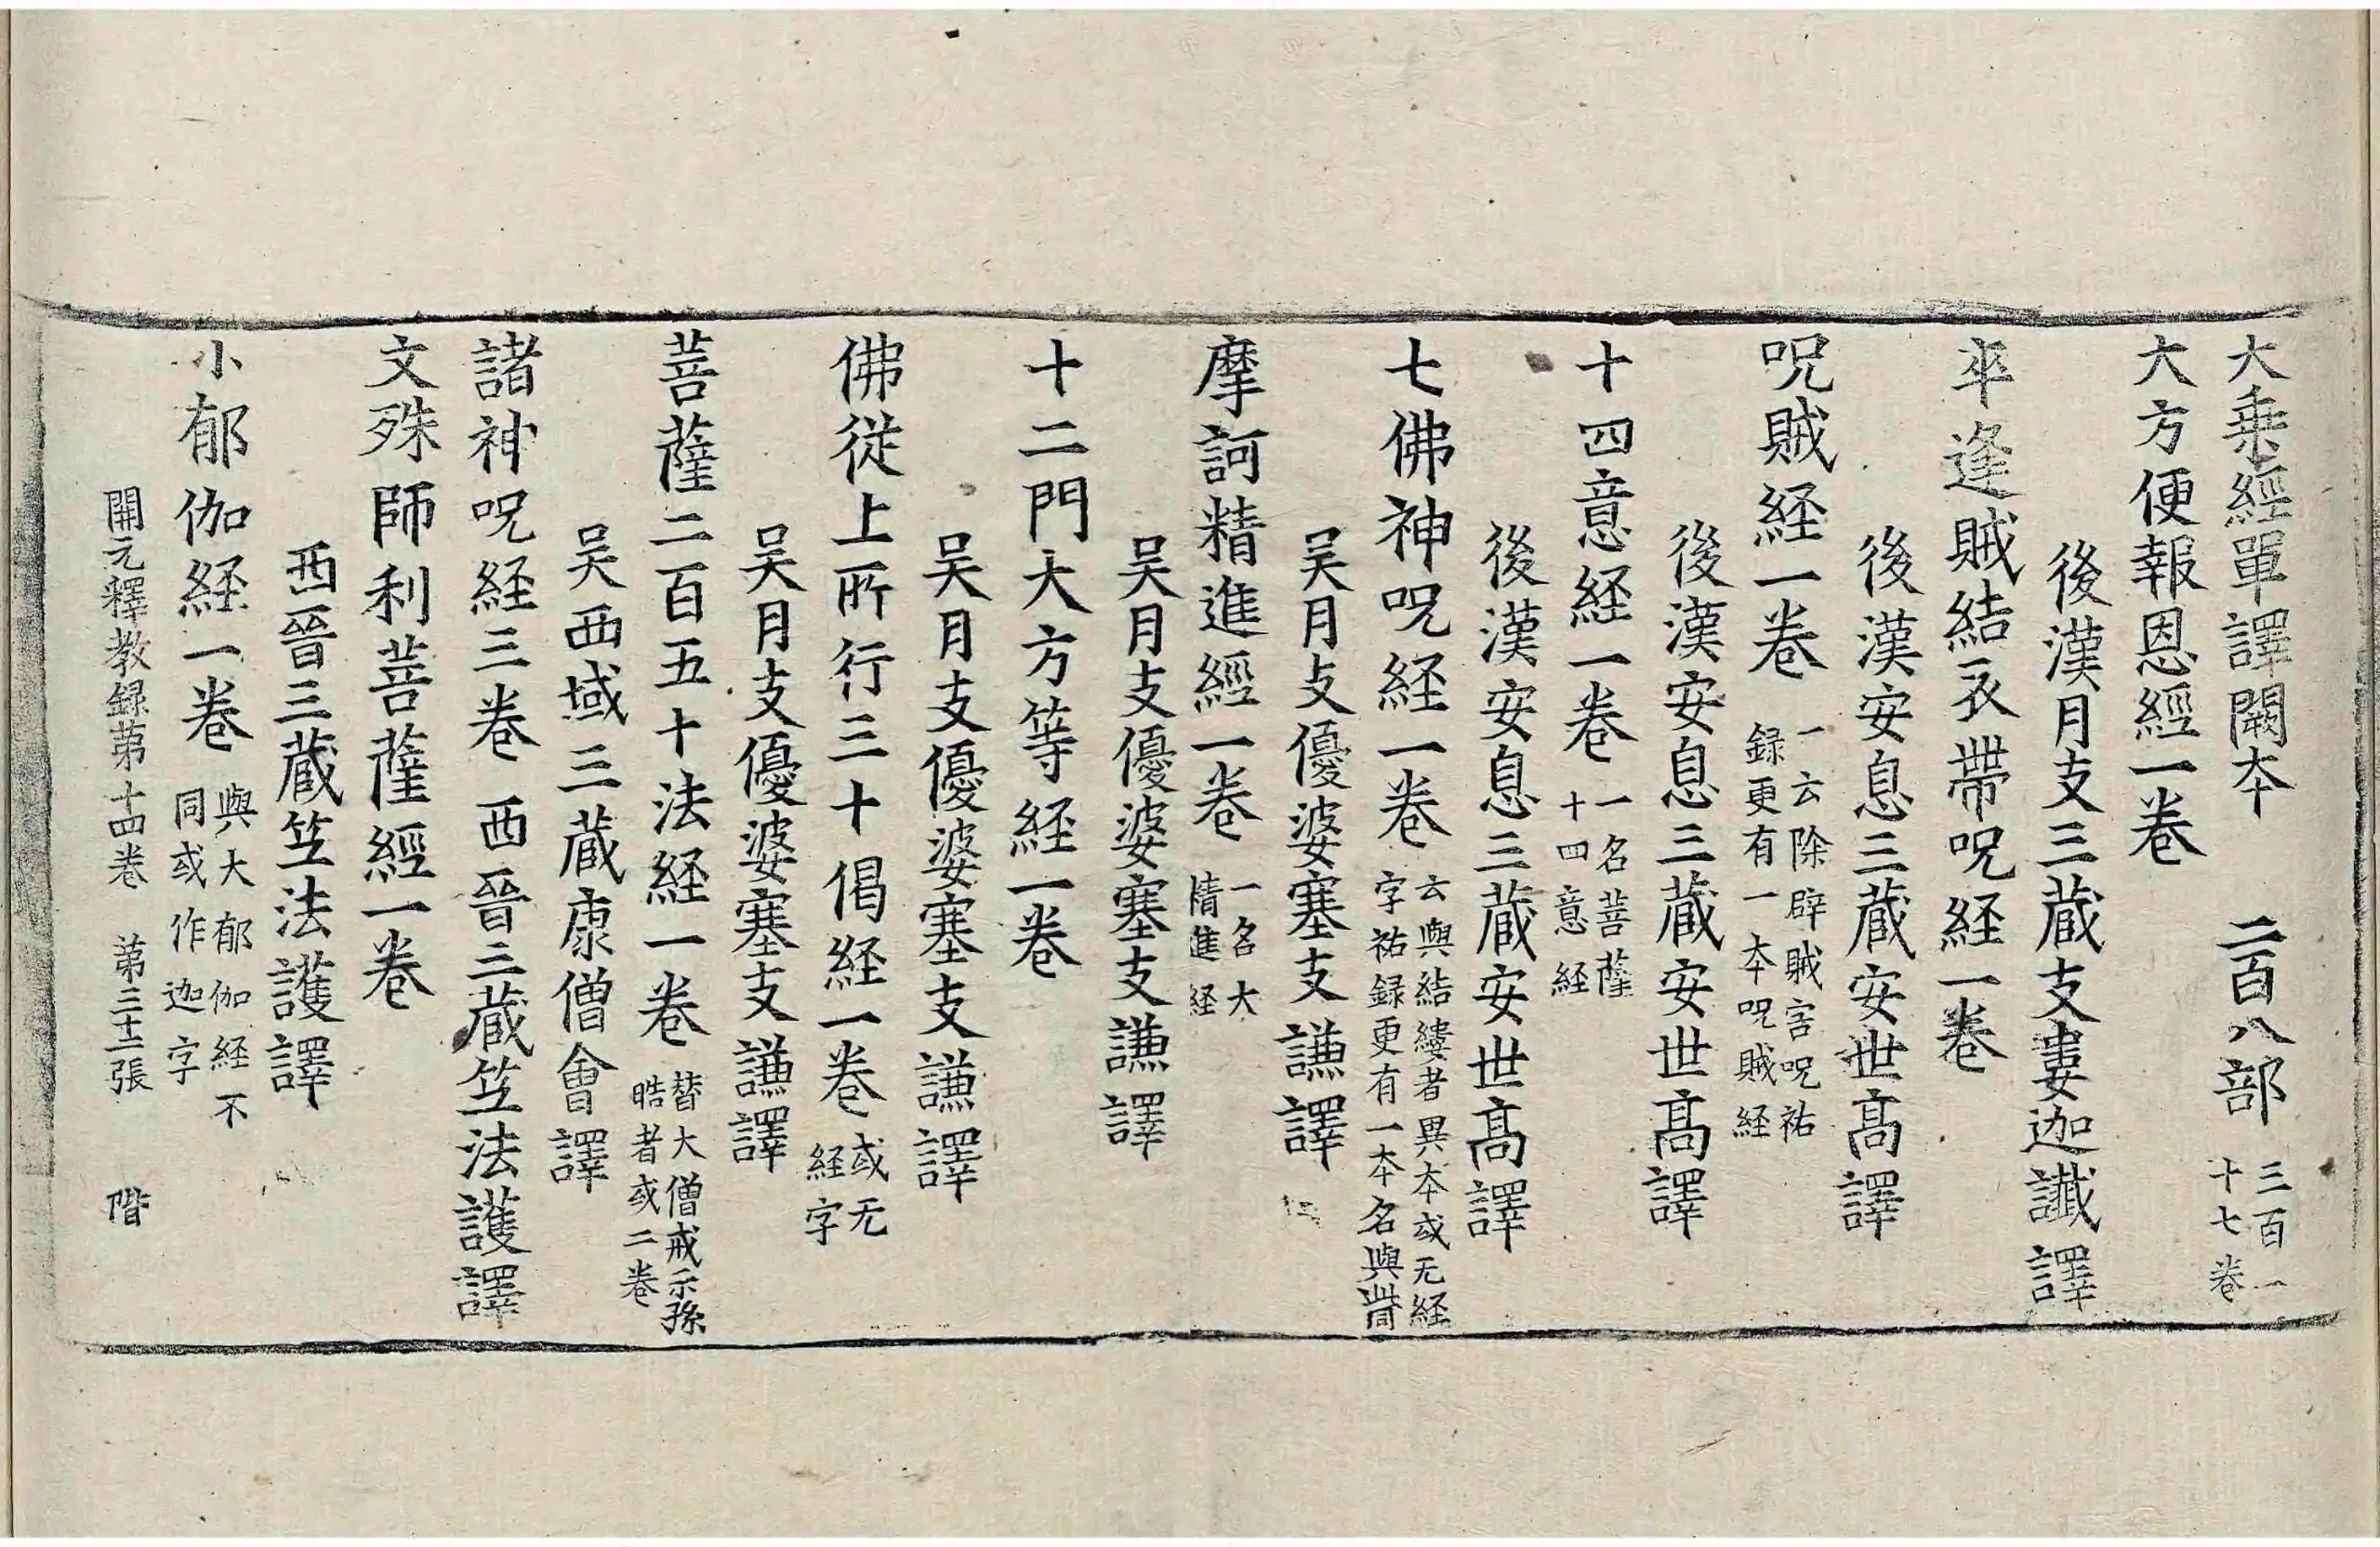 大乗經單譯闕夲　二百八部　三百一十七卷
大方便報恩經一卷
後漢月支三蔵支婁迦讖譯
卒逢賊結衣帶呪経一卷
後漢安息三蔵安世髙譯
呪賊経一卷　一云除辟賊害呪祐録更有一夲呪賊経
後漢安息三蔵安世髙譯
十四意経一卷　一名菩薩十四意経
後漢安息三蔵安世髙譯
七佛神呪経一卷　云與結縷者異夲或无経字祐録更有一夲名與此皆
吴月支優婆塞支謙譯
摩訶精進經一卷　一名大精進経
吴月支優婆塞支謙譯
十二門大方等経一卷
吴月支優婆塞支謙譯
佛從上所行三十偈経一卷　或无経字
吴月支優婆塞支謙譯
菩薩二百五十法経一卷　替大僧戒示孫晧者或二卷
吴西域三蔵康僧會譯
諸神呪経三卷　西晉三蔵竺法護譯
文殊師利菩薩經一卷
西晉三蔵竺法護譯
小郁伽経一卷　與大郁伽経不同或作迦字
開元釋教録苐十四卷　苐三十二張　階